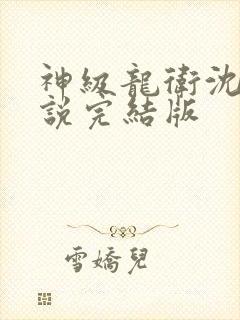 神級龍衛沈
說完結版
雪嬌兒